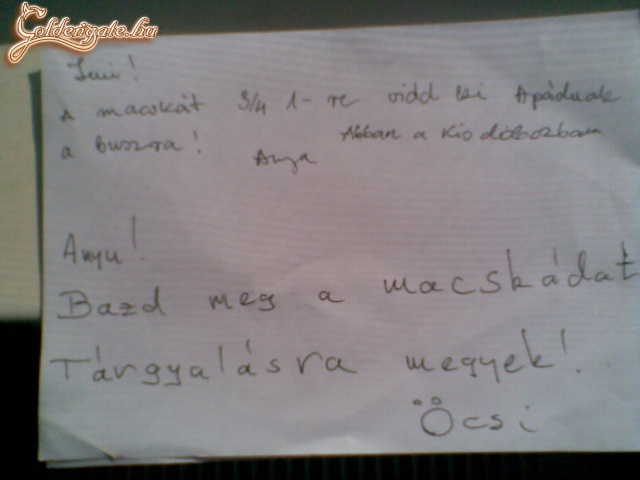 Goldengate.hu
Imi!
A macskát 3/4 1-re vidd ki Apádnak
a buszra! Abban a kis dobozban
Anya
Anyu!
Bazd meg a macskádat
Tárgyalásra megyek!
Öcsi